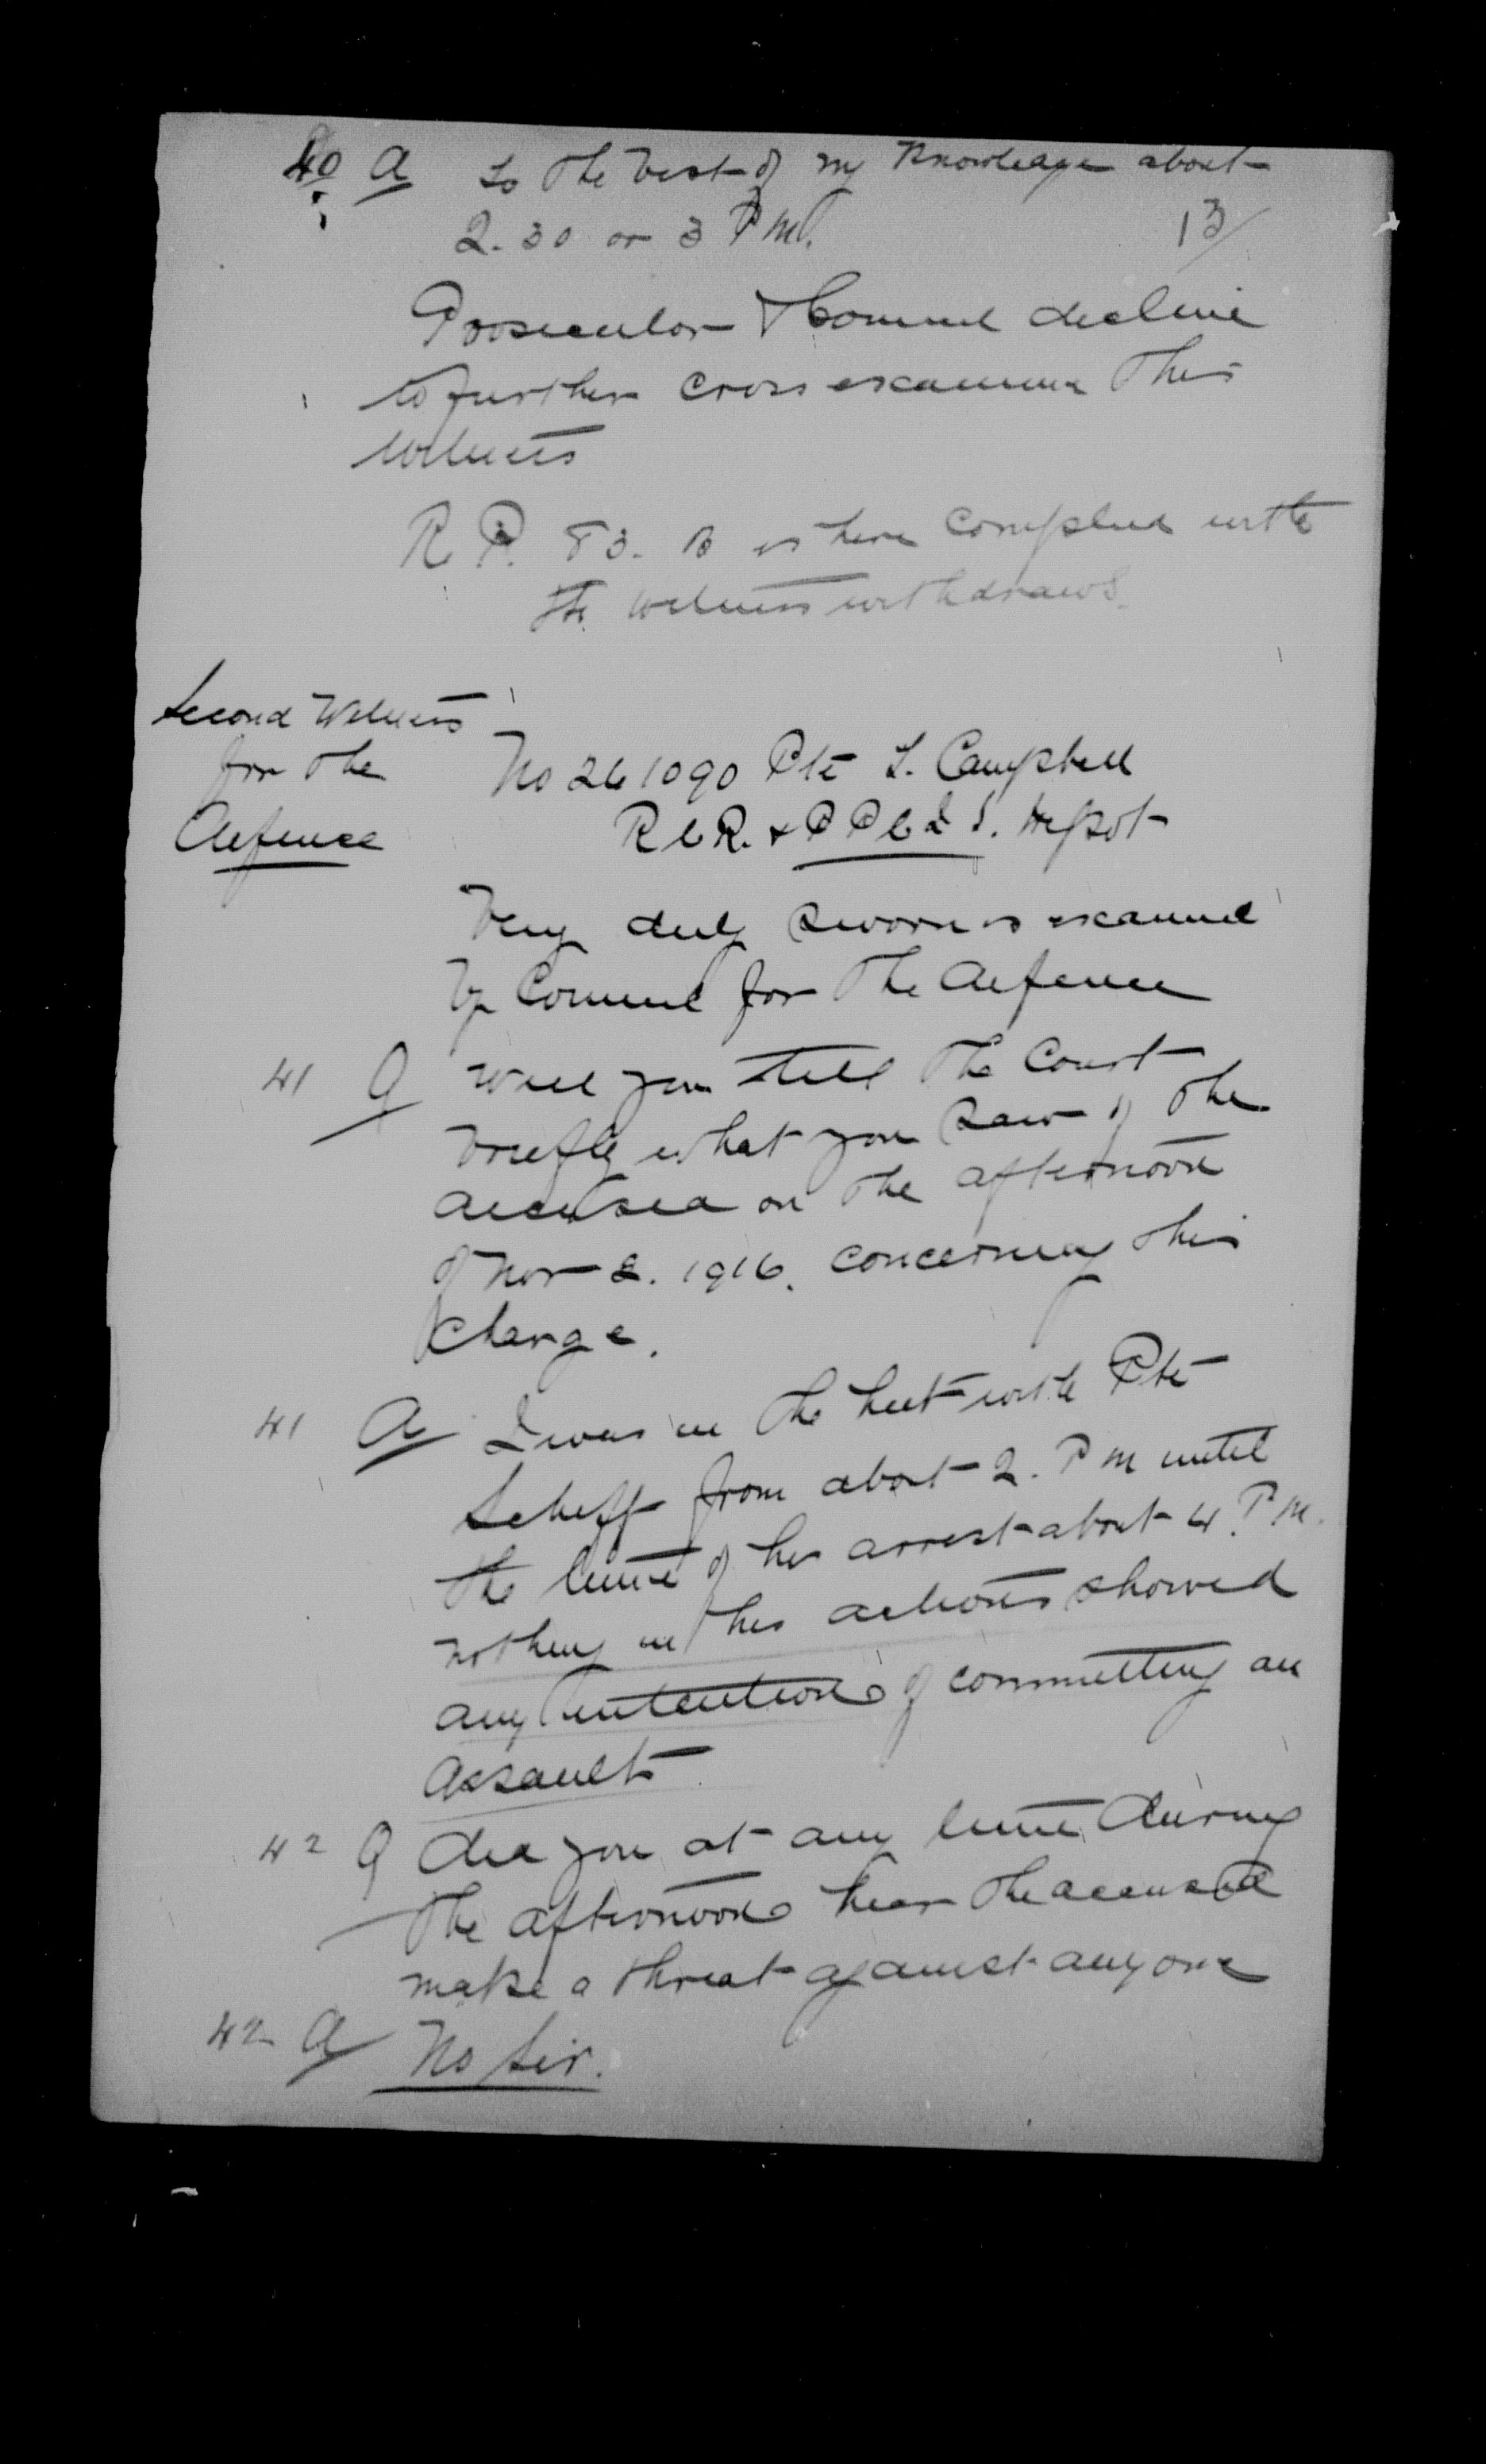 40 A to the best of my knowledge about
2.30 or 3 P M.
13/
Prosecutor & Counsel decline
to further cross examine this
witness
R. P. 83. B is here complied with
the witness withdraws.
Second Witness
for the
defence
No 261090 Pte L. Campbell
R C R. & P P C L I. Depot
Being duly sworn is examined
by Counsel for the defence
41 Q will you tell the Court
briefly what you saw of the
accused on the afternoon
of Nov 2. 1916. concerning this
charge.
41 A I was in the hut with Pte
from about 2. P M until
the time of his arrest about 4 P. M.
nothing in his actions showed
any intention of committing an
assault
42 Q did you at any time during
the afternoon hear the accused
make a threat against anyone
42 A No Sir.